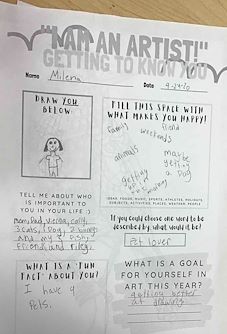 "I AM AN ARTIST!"
GETTING TO KNOW YOU
Name Milena Date 9-24-20
DRAW YOU
BELOW
FILL THIS SPACE WITH
WHAT MAKES YOU HAPPY!
family
friend
weekends
animals
maybe
getting
a Dog
getting
IDEAS: FOODS, MUSIC, SPORTS, ATHLETES, HOLIDAYS
SUBJECTS, ACTIVITIES, PLACES, WEATHER, PEOPLE
TELL ME ABOUT WHO
IS IMPORTANT TO
YOU IN YOUR LIFE :)
Mom, Dad,
3 cats, 1 Dog, 2 bunnys
And my 3 fish,
Friend and riley.
If you could choose one word to be
described by, what would it be?
Pet lover
WHAT IS A "FUN
FACT" ABOUT YOU?
I have 9
Pets.
WHAT IS A GOAL
FOR YOURSELF IN
ART THIS YEAR?
getting better
at drawing